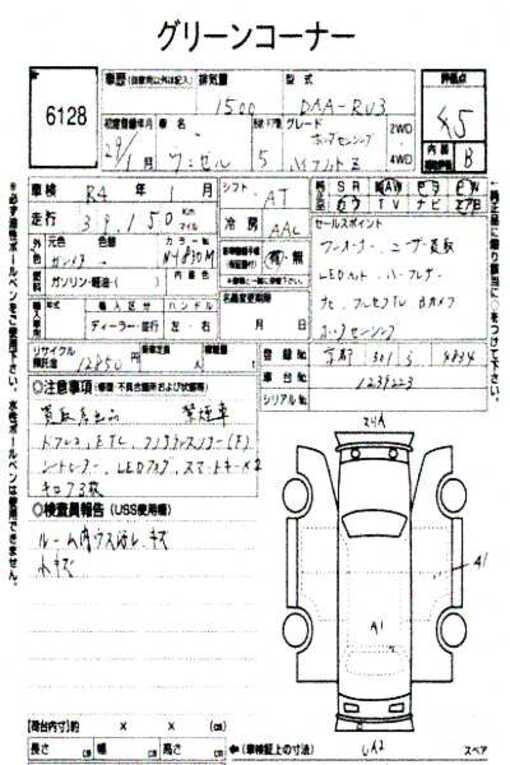 グリーンコーナー
6128
車歴 (自家用以外は記入) 排気量 型式
1500 DAA-RU3
評価点
4.5
初度登録年月 車名 ドア形状 グレード 2WD
29/1月 ヴェゼル 5 ホンダセンシング 4WD
ハイブリッドZ
内装 B
車検 R4 年 1 月
シフト AT
SR AW PS PW
カワ TV ナビ エアB
走行 39,150 Km マイル
冷房 AAC
セールスポイント
ワンオーナー、ユーザー買取
外色 元色 色替 カラーNo
ガンメタ NH830M
有・無
LEDヘッド、ハーフレザー
燃料 ガソリン・軽油・( ) 内装色
名義変更期限
ナビ、フルセグTV、Bカメラ
年式 輸入区分 ハンドル
ディーラー・並行 左・右
月 日
ホンダセンシング
リサイクル預託金 12850 円 乗車定員 人 積載量 t
登録No 京都 301 さ 4834
車台No 1239223
シリアルNo
◎注意事項 (修復・不具合箇所および状態等)
買取系出品 禁煙車
ドラレコ、ETC、
シートヒーター、LEDフォグ、スマートキー×2
◎検査員報告 (USS使用欄)
ルーム内ウス汚レ、キズ
小キズ
スリA
A1
A1
UA2
【荷台内寸】約 × × (cm)
長さ cm 幅 cm 高さ cm
←(車検証上の寸法) スペア
※必ず油性ボールペンをご使用下さい。水性ボールペンは使用できません。